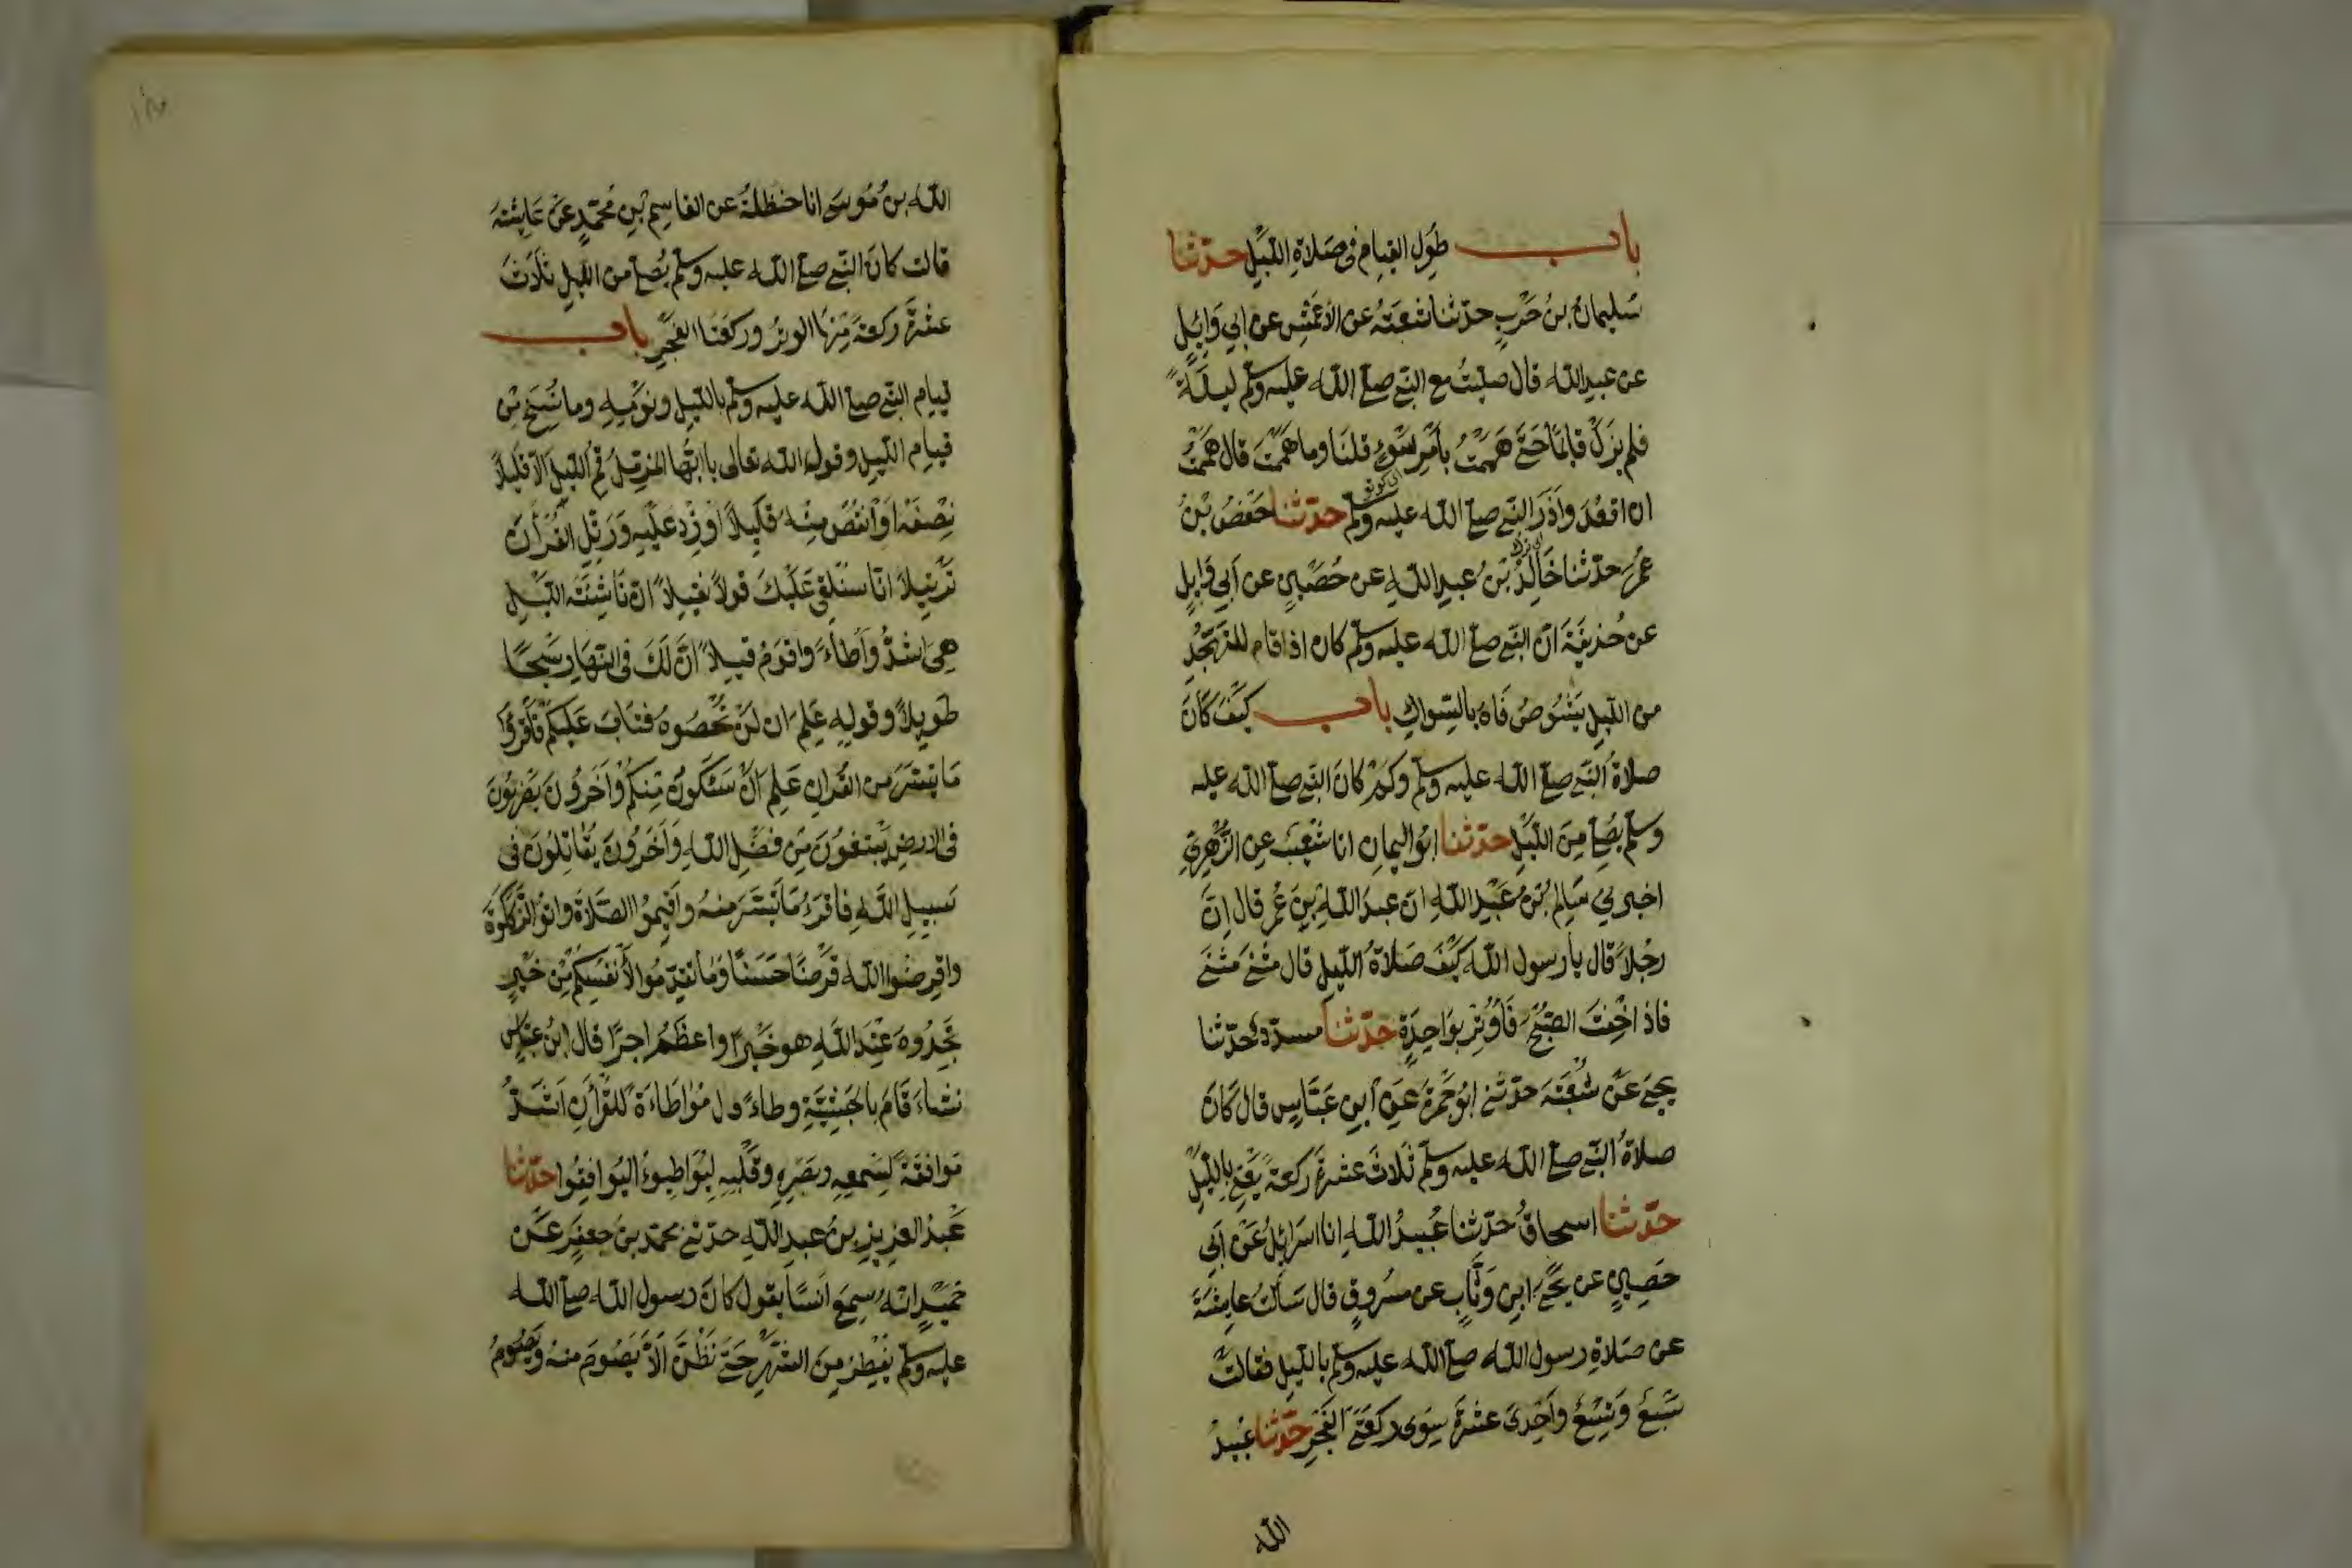 باب طول القيام في صلاة الليل حدثنا
سليمان بن حرب حدثنا شعبة عن الأعمش عن ابي وايل
عن عبد الله قال صليت مع النبي صلى الله عليه وسلم ليلة
فلم يزل قايما حتى هممت بأمر سوء قلنا وما هممت قال هممت
ان اقعد واذر النبي صلى الله عليه وسلم حدثنا حفص بن
عمر حدثنا خالد بن عبد الله عن حصين عن ابي وايل
عن حذيفة ان النبي صلى الله عليه وسلم كان اذا قام للتهجد
من الليل يشوص فاه بالسواك باب كيف كان
صلاة النبي صلى الله عليه وسلم وكم كان النبي صلى الله عليه
وسلم يصلي من الليل حدثنا ابو اليمان انا شعيب عن الزهري
اخبرني سالم بن عبد الله ان عبد الله بن عمر قال ان
رجلا قال يا رسول الله كيف صلاة الليل قال مثنى مثنى
فاذا خفت الصبح فاوتر بواحدة حدثنا مسدد حدثنا
يحيى عن شعبة حدثني ابو جمرة عن ابن عباس قال كان
صلاة النبي صلى الله عليه وسلم ثلاث عشرة ركعة يعني بالليل
حدثنا اسحاق حدثنا عبيد الله انا اسرايل عن ابي
حصين عن يحيى ابن وثاب عن مسروق قال سألت عايشة
عن صلاة رسول الله صلى الله عليه وسلم بالليل فقالت
سبع وتسع واحدى عشرة سوى ركعتي الفجر حدثنا عبيد
الله
الله بن موسى انا حنظلة عن القاسم بن محمد عن عايشة
قالت كان النبي صلى الله عليه وسلم يصلي من الليل ثلاث
عشرة ركعة منها الوتر وركعتا الفجر باب
قيام النبي صلى الله عليه وسلم بالليل ونومه وما نسخ من
قيام الليل وقوله الله تعالى يا ايها المزمل قم الليل الا قليلا
نصفه او انقص منه قليلا او زد عليه ورتل القرأن
ترتيلا انا سنلقي عليك قولا ثقيلا ان ناشئة الليل
هي اشد وطاء واقوم قيلا ان لك في النهار سبحا
طويلا وقوله علم ان لن تحصوه فتاب عليكم فاقرؤا
ما تيسر من القران علم ان سيكون منكم واخرون يضربون
في الارض يبتغون من فضل الله واخرون يقاتلون في
سبيل الله فاقرءوا ما تيسر منه واقيموا الصلاة واتوا الزكوة
واقرضوا الله قرضا حسنا وما تقدموا لأنفسكم من خير
تجدوه عند الله هو خيرا واعظم اجرا قال ابن عباس
نشاء قام بالحبشية وطاء قال مواطاءة للقرأن اشد
موافقة لسمعه وبصره وقلبه ليواطيوا ليوافقوا حدثنا
عبد العزيز بن عبد الله حدثني محمد بن جعفر عن
حميد انه سمع انسا يقول كان رسول الله صلى الله
عليه وسلم يفطر من الشهر حتى نظن الا يصوم منه ويصوم